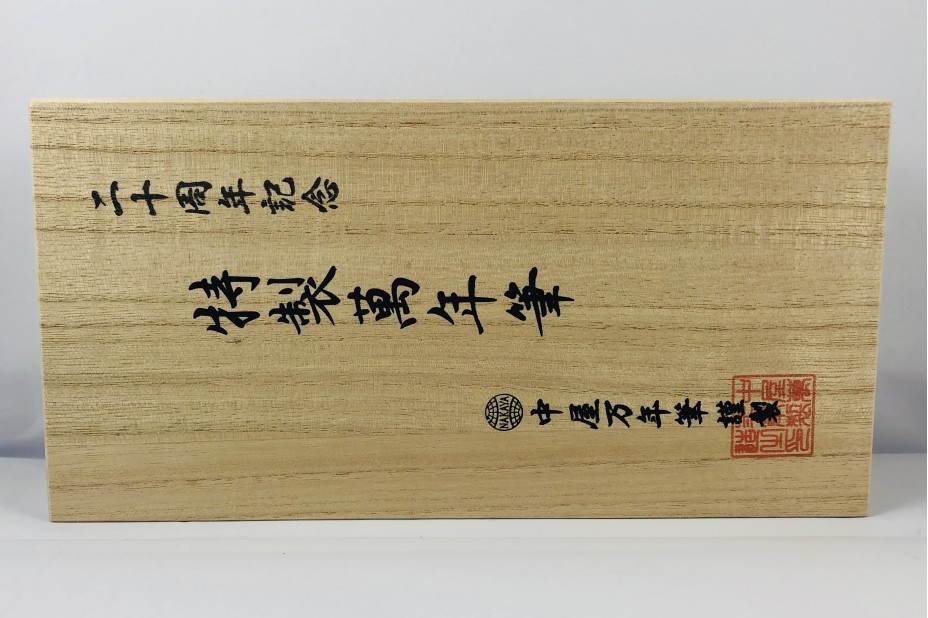 二十周年記念
特製萬年筆
NAKAYA 中屋万年筆謹製